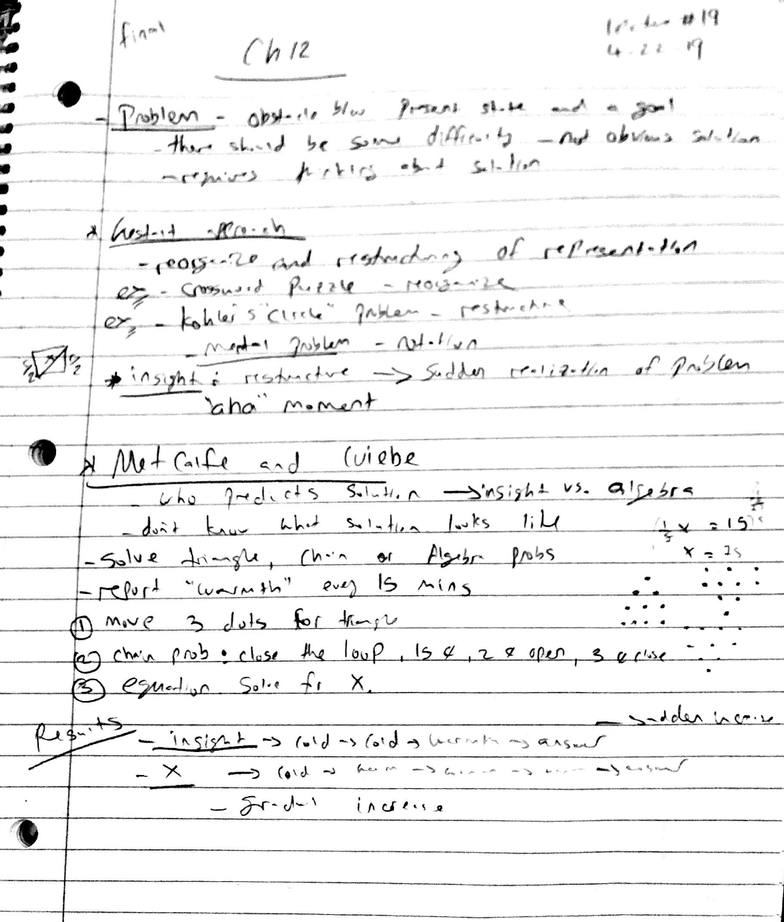 final
Ch 12
lecture #19
4-22-19
- Problem - obstacle b/w present state and a goal
- there should be some difficulty - not obvious solution
- requires thinking about solution
* Gestalt approach
- reorganize and restructuring of representation
ex - crossword puzzle - reorganize
ex, - Kohler's "Circle" problem - restructure
- mental problem - rotation
* insight : restructure -> sudden realization of problem
"aha" moment
* Metcalfe and Wiebe
- who predicts solution -> insight vs. algebra
- don't know what solution looks like
- solve triangle, chain or Algebra probs
- report "warmth" every 15 mins
① move 3 dots for triangle
② chain prob : close the loop, 15 ¢, 2 ¢ open, 3 ¢ close
③ equation solve for X.
x = 75
Results
- sudden increase
- insight -> cold -> cold -> warmth -> answer
- X -> cold -> warm -> -> -> answer
- gradual increase